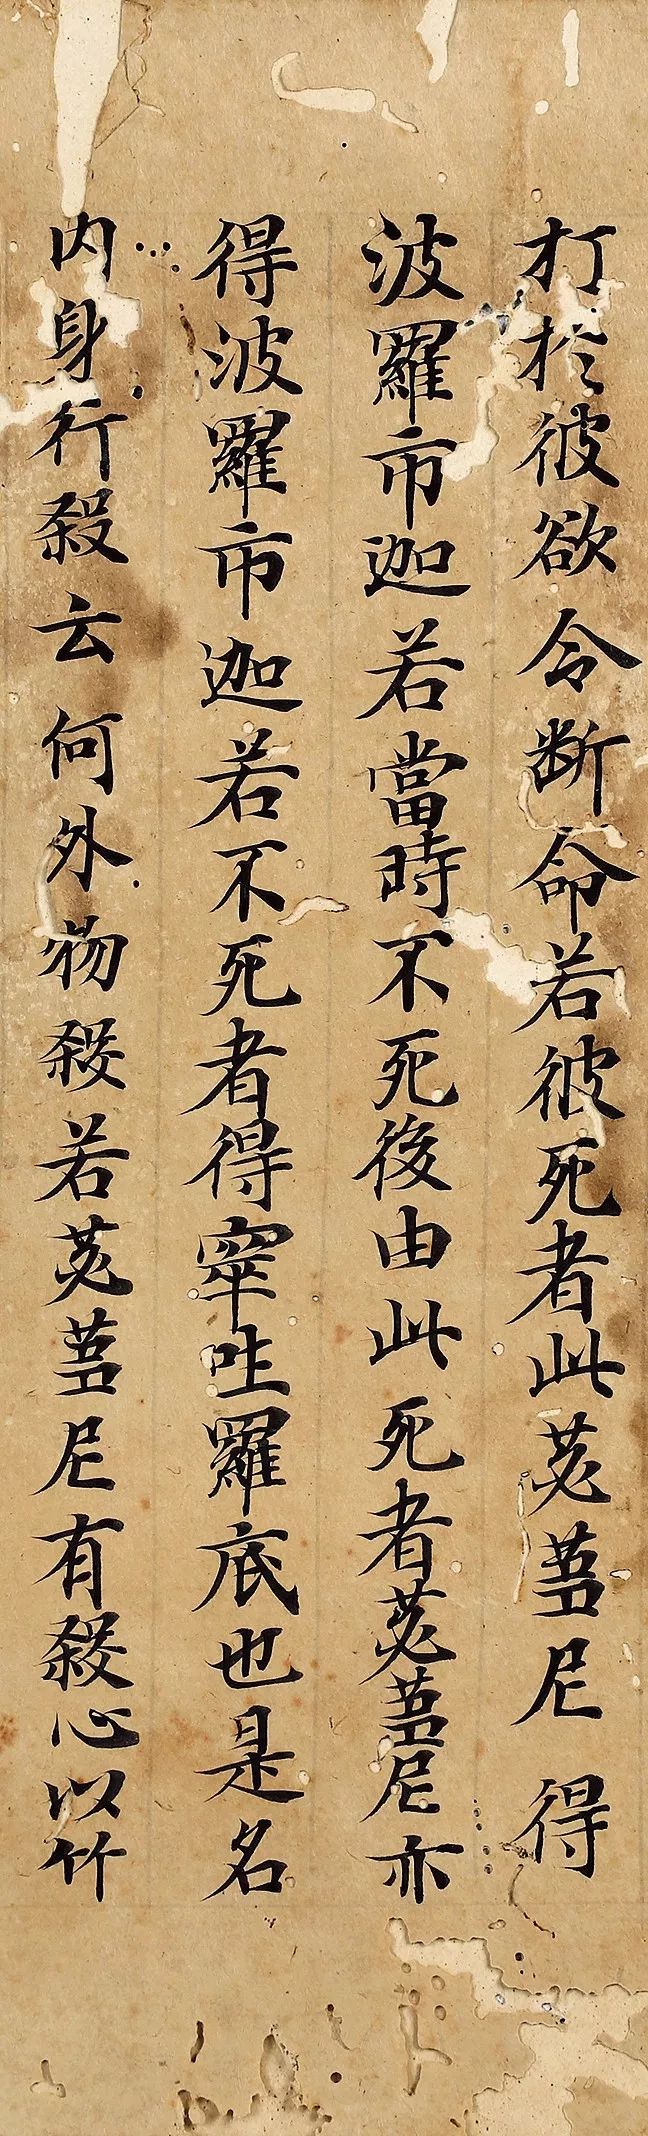 打於彼欲令断命若彼死者此苾蒭尼得
波羅市迦若當時不死後由此死者苾蒭尼亦
得波羅市迦若不死者得窣吐羅底也是名
内身行殺云何外物殺若苾蒭尼有殺心以竹